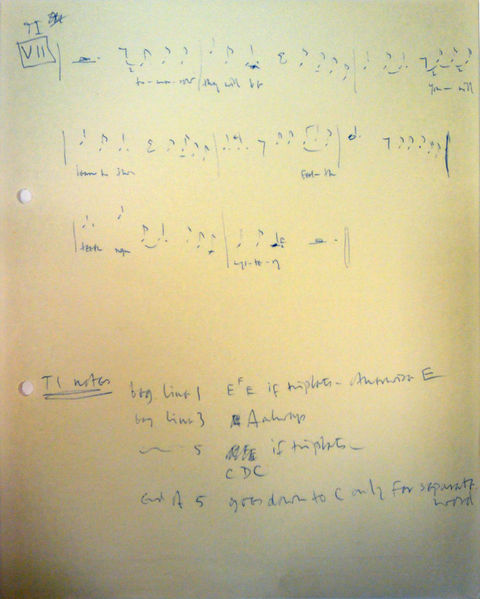 TI
VII
to-mor-row they will be
You will
learn to
teeth
mys-te-ry
TI notes
beg line 1 E F E if triplets - otherwise E
beg line 3 A always
5 if triplets -
CDC
end of 5 goes down to C only for separate
word